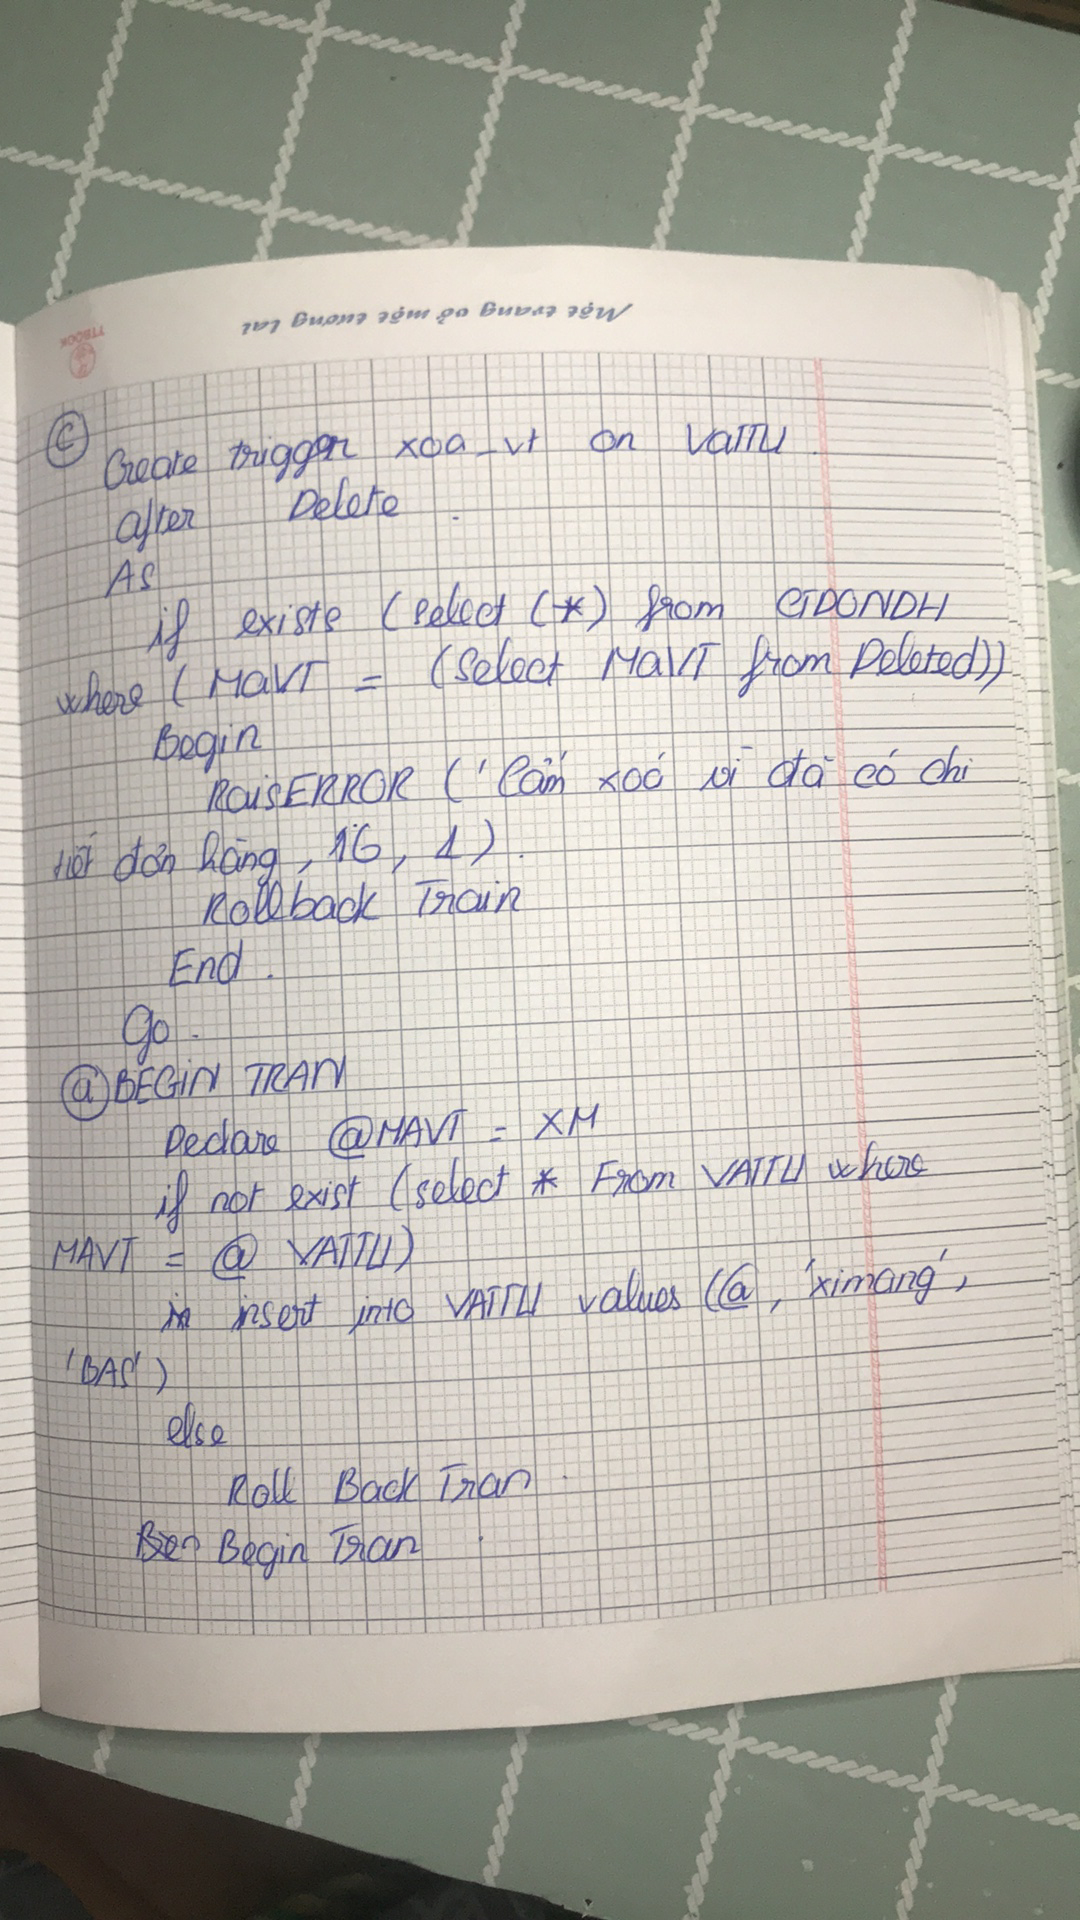 Một trang vở một tương lai
YTBOOK
C Create trigger xoa_vt on VaTTU
after Delete
AS
if existe (select (*) from CTDONDH
where (MaVT = (Select MaVT from Deleted))
Begin
RaisERROR ('Cấm xoá vì đã có chi
tiết đơn hàng, 16, 1).
Rollback Train
End.
Go.
a BEGIN TRAN
Declare @MAVT = XM
if not exist (select * From VATTU where
MAVT = @ VATTU)
insert into VATTU values (@, 'ximang',
'BAS')
else
Roll Back Tran.
Begin Tran